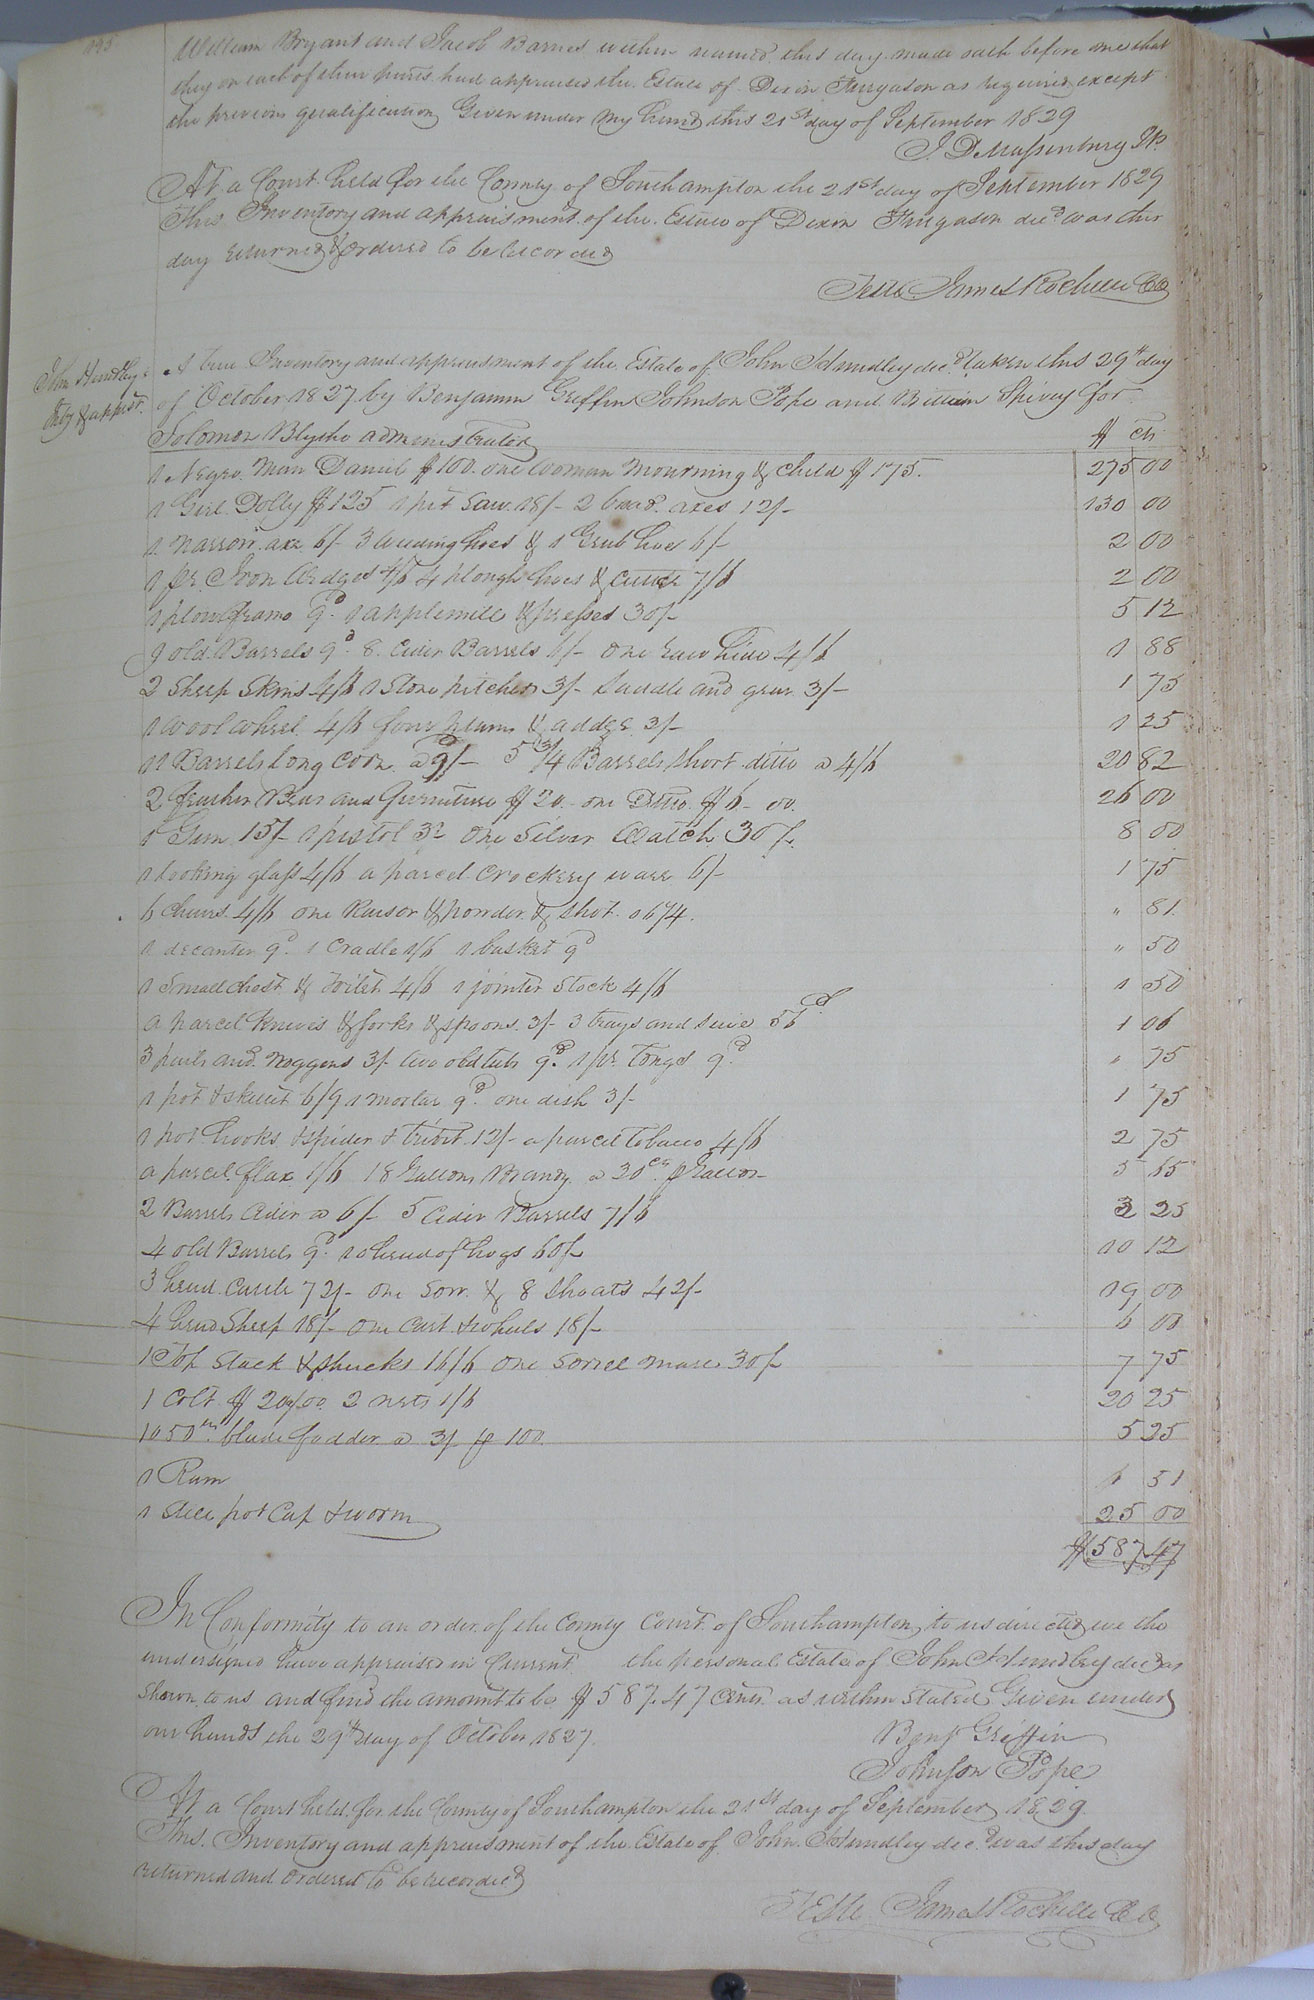 William Bryant and Jacob Barnes within named this day made oath before me that
they on each of their parts had appraised the Estate of Dixon Furgason as required except
the previous qualification Given under my hand this 21st day of September 1829
J. D. Massenburg JP.
At a Court held for the County of Southampton the 21st day of September 1829
This Inventory and appraisment of the Estate of Dixon Furgason decd was this
day returned & ordered to be recorded
Teste James Rochelle CC
John Hundley's
Inty & apprst.
A true Inventory and appraisment of the Estate of John Hundley decd taken this 29th day
of October 1827 by Benjamin Griffin Johnson Pope and Spivey for
Solomon Blythe administrator $ cts
1 Negro Man Daniel $100. one woman Mourning & child $175. 275 00
1 Girl Dolly $125 1 pit saw 18/- 2 broad axes 12/- 130 00
1 narrow axe 6/- 3 weeding hoes & 1 Grub hoe 6/- 2 00
1 pr. Iron Wedges 4/6 4 plough hoes & 7/6 2 00
1 plow frame 9d. 1 applemill & presses 30/- 5 12
9 old Barrels 9d. 8 Cider Barrels 6/- one raw hide 4/6 1 88
2 Sheep Skins 4/6 1 Stone pitcher 3/- saddle and gear 3/- 1 75
1 wool wheel 4/6 four & addze 3/- 1 25
11 Barrels long corn a 9/- 5 3/4 Barrels short ditto a 4/6 20 82
2 feather Beds and furniture $20 - one Ditto $6-00. 26 00
1 Gun 15/- 1 pistol 3/- one Silver Watch 30/- 8 00
1 looking glass 4/6 a parcel crockery ware 6/- 1 75
6 chairs 4/6 one Raisor & powder & shot " 81
1 decanter 9d. 1 Cradle 1/6 1 basket 9d " 50
1 Small chest & toilet 4/6 1 jointer Stock 4/6 1 50
a parcel knives & forks & spoons 3/- 3 trays and seive 1 06
3 pails and noggens 3/- two old tubs 9d. 1 pr. Tongs 9d. " 75
1 pot & skillet 6/9 1 9d. one dish 3/- 1 75
1 pot hooks & spider & 12/- a parcel tobacco 4/6 2 75
a parcel flax 1/6 18 Gallons Brandy a 30cts p Gallon 5 65
2 Barrels Cider a 6/- 5 Cider Barrels 7/6 3 25
4 old Barrels 9d. 10 head of hogs 60/- 10 12
3 head cattle 72/- one Sow & 8 Shoats 42/- 19 00
4 head Sheep 18/- one cart & wheels 18/- 6 00
1 Top Stack & shucks 16/6 one Sorrel mare 30/- 7 75
1 Colt $20/00 2 1/6 20 25
1050 blade fodder a 3/ p 100 5 25
1 Ram 1 51
1 Still pot Cap & worm 25 00
$587 47
In Conformity to an order of the County Court of Southampton to us directed we the
undersigned have appraised in Current the personal Estate of John Hundley decd as
shown to us and find the amount to be $587.47 cents as within stated Given under
our hands the 29th day of October 1827.
Benj Griffin
Johnson Pope
At a Court held for the County of Southampton the 21st day of September 1829.
This Inventory and appraisment of the Estate of John Hundley decd was this day
returned and ordered to be recorded
Teste James Rochelle CC